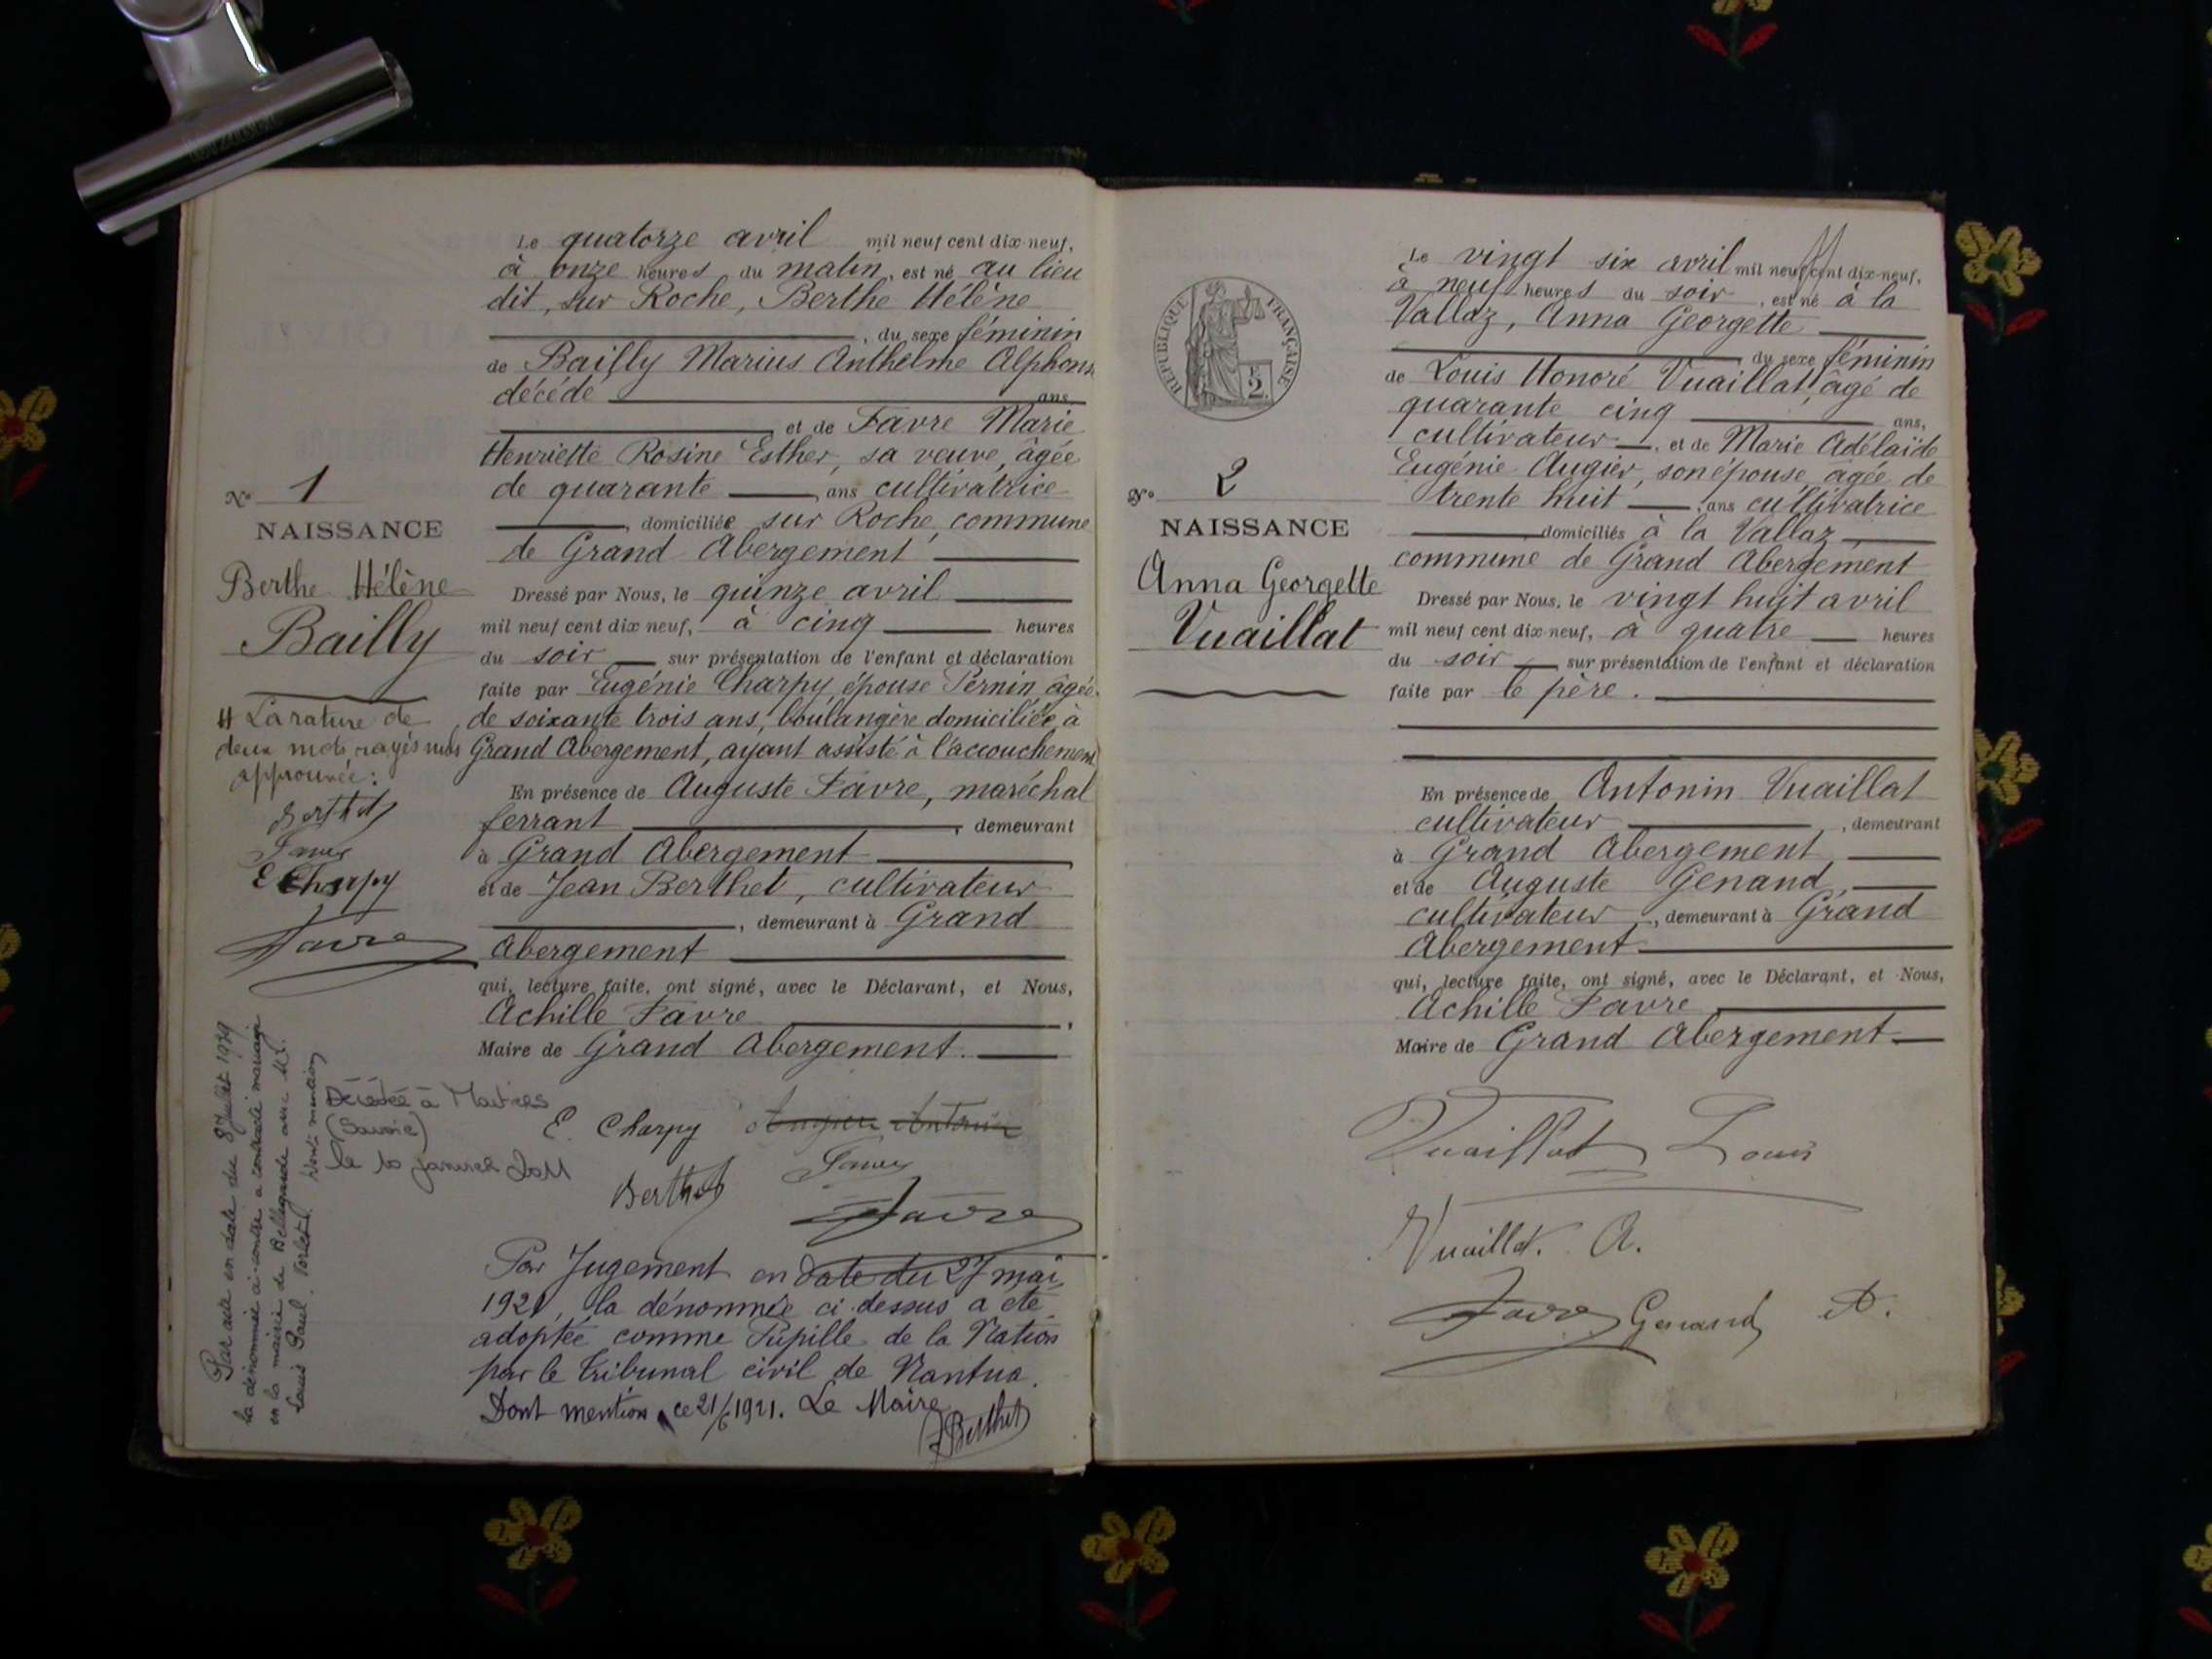 Le quatorze avril mil neuf cent dix-neuf,
à onze heures du matin, est né au lieu
dit, sur Roche, Berthe Hélène
, du sexe féminin
de Bailly Marius Anthelme Alphonse
décédé ans,
et de Favre Marie
Henriette Rosine Esther, sa veuve, âgée
de quarante ans cultivatrice
, domiciliée sur Roche, commune
de Grand Abergement
Dressé par Nous, le quinze avril
mil neuf cent dix neuf, à cinq heures
du soir sur présentation de l'enfant et déclaration
faite par Eugénie Charpy, épouse Pernin, âgée
de soixante trois ans, boulangère domiciliée à
Grand Abergement, ayant assisté à l'accouchement
En présence de Auguste Favre, maréchal
ferrant , demeurant
à Grand Abergement
et de Jean Berthet, cultivateur
, demeurant à Grand
Abergement
qui, lecture faite, ont signé, avec le Déclarant, et Nous,
Achille Favre ,
Maire de Grand Abergement.
E. Charpy
Berthet
Favre
Par Jugement en date du 27 mai
1921, la dénommée ci-dessus a été
adoptée comme Pupille de la Nation
par le tribunal civil de Nantua.
Dont mention, ce 21/6 1921. Le Maire
J Berthet
No 1
NAISSANCE
Berthe Hélène
Bailly
La rature de
deux mots rayés nuls
approuvée:
Berthet
E Charpy
Favre
Par acte en date du 8 Juillet 1939
la dénommée ci-contre a contracté mariage
en la mairie de Bellegarde avec Mr.
Louis Paul. Dont mention
Décédée à
(Savoie)
le 10 janvier 2011
RÉPUBLIQUE FRANÇAISE
2
No 2
NAISSANCE
Anna Georgette
Vuaillat
Le vingt six avril mil neuf cent dix-neuf,
à neuf heures du soir, est né à la
Vallaz, Anna Georgette
, du sexe féminin
de Louis Honoré Vuaillat, âgé de
quarante cinq ans,
cultivateur, et de Marie Adélaïde
Eugénie Augier, son épouse, âgée de
trente huit, ans cultivatrice
domiciliés à la Vallaz,
commune de Grand Abergement
Dressé par Nous, le vingt huit avril
mil neuf cent dix-neuf, à quatre heures
du soir sur présentation de l'enfant et déclaration
faite par le père.
En présence de Antonin Vuaillat
cultivateur , demeurant
à Grand Abergement,
et de Auguste Genand,
cultivateur, demeurant à Grand
Abergement
qui, lecture faite, ont signé, avec le Déclarant, et Nous,
Achille Favre,
Maire de Grand Abergement
Vuaillat Louis
Vuaillat. A.
Favre Genand A.